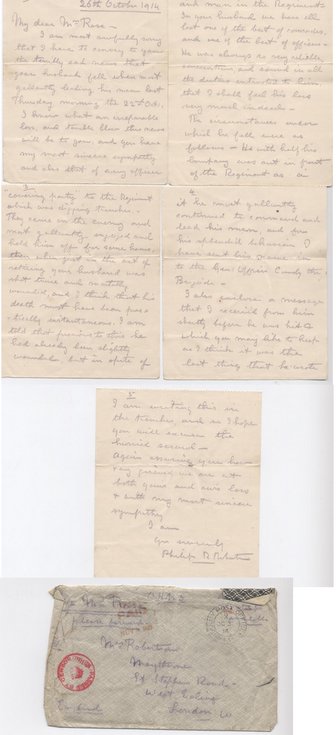 26th October 1914
My dear Mrs Rose -
I am most awfully sorry
that I have to convey to you
the terribly sad news that
your husband fell when most
gallantly leading his men last
Thursday morning the 22nd Oct.
I know what an irreparable
loss, and terrible blow this news
will be to you, and you have
my most sincere sympathy
and also that of every officer
and man in the Regiment.
In your husband we have all
lost one of the best of comrades,
and one of the best of officers -
He was always so very reliable,
and sound in all
the duties entrusted to him
that I shall feel his loss
very much indeed -
The circumstances under
which he fell were as
follows - He with half his
Company was out in front
of the Regiment as a
3
"covering party" to the Regiment
which was digging trenches -
They came on the enemy and
most gallantly engaged and
held them off for some hours,
then when just in the act of
retiring your husband was
shot three and mortally
wounded, and I think that his
death must have been prac-
tically instantaneous. I am
told that previous to this he
had already been slightly
wounded but in spite of
4
it he most gallantly
continued to command and
lead his men, and for
his splendid behaviour I
have sent his name in
to the Genl Officer Comdg the
Brigade -
I also enclose a message
that I received from him
shortly before he was hit
which you may like to keep
as I think it was the
last thing that he wrote
5
I am writing this in
the trenches, and so I hope
you will excuse the
horrid scrawl -
Again assuring you how
very grieved we are at
both yours and our loss
& with my most sincere
sympathy
I am
Yrs sincerely
Philip R. Robertson
Mrs Rose
please forward
Mrs Robertson
St Stephens Road
West Ealing
London W
PASSED BY CENSOR